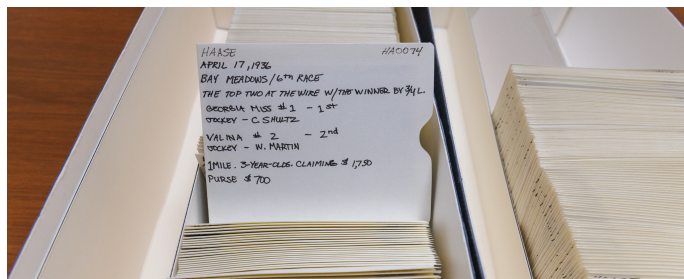 HAASE HA0074
APRIL 17, 1936
BAY MEADOWS/6th RACE
THE TOP TWO AT THE WIRE W/THE WINNER BY 3/4 L.
GEORGIA MISS #1 - 1st
JOCKEY - C. SHULTZ
VALINA # 2 - 2nd
JOCKEY - W. MARTIN
1 MILE. 3-YEAR-OLDS. CLAIMING $1,750
PURSE $700